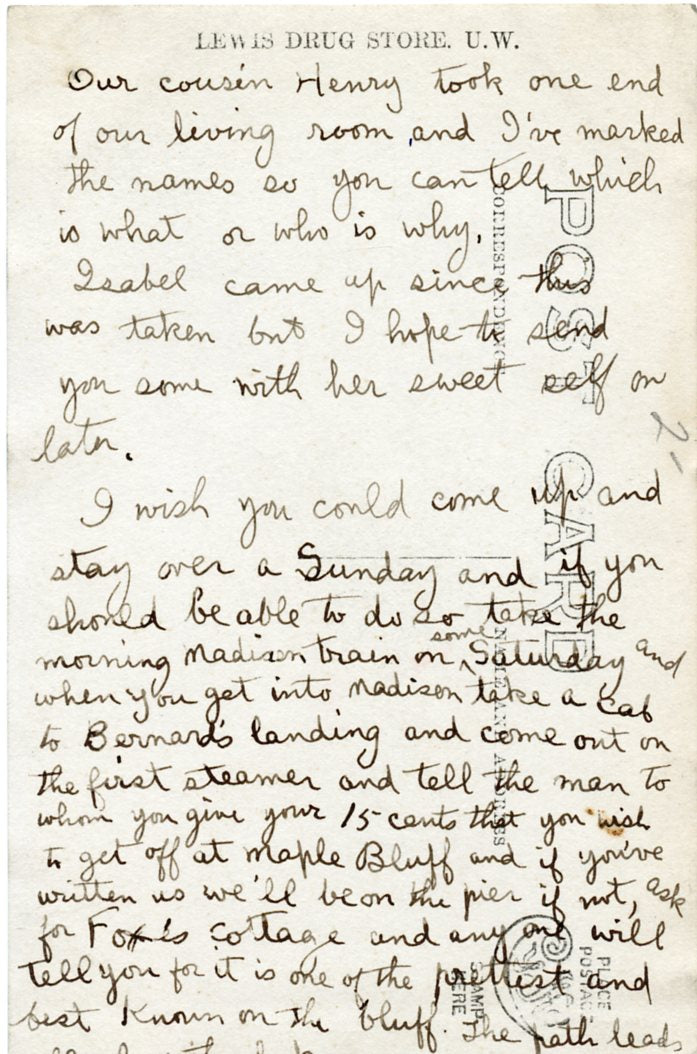 LEWIS DRUG STORE. U.W.
Our cousin Henry took one end
of our living room, and I've marked
the names so you can tell which
is what or who is why.
Isabel came up since this
was taken but I hope to send
you some with her sweet self on
later.
I wish you could come up and
stay over a Sunday and if you
should be able to do so take the
morning Madison train on some Saturday and
when you get into Madison take a cab
to Bernard's landing and come out on
the first steamer and tell the man to
whom you give your 15 cents that you wish
to get off at Maple Bluff and if you've
written us we'll be on the pier if not, ask
for Fox's cottage and any one will
tell you for it is one of the prettiest and
best known on the bluff. The path leads
POST CARD
CORRESPONDENCE
NAME AND ADDRESS
PLACE
POSTAGE
STAMP
HERE
2-